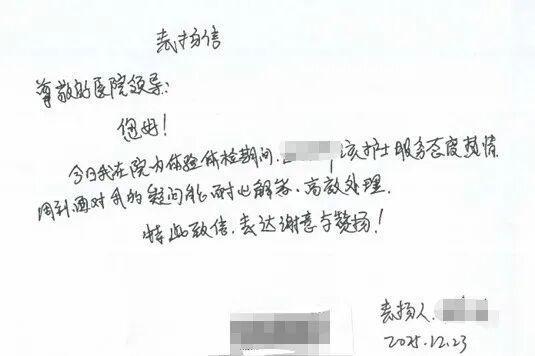 表扬信
尊敬的医院领导:
您好!
今日我在院内体验体检期间, 该护士服务态度热情
周到面对我的疑问能耐心解答、高效处理.
特此致信.表达谢意与赞扬!
表扬人.
2025.12.23